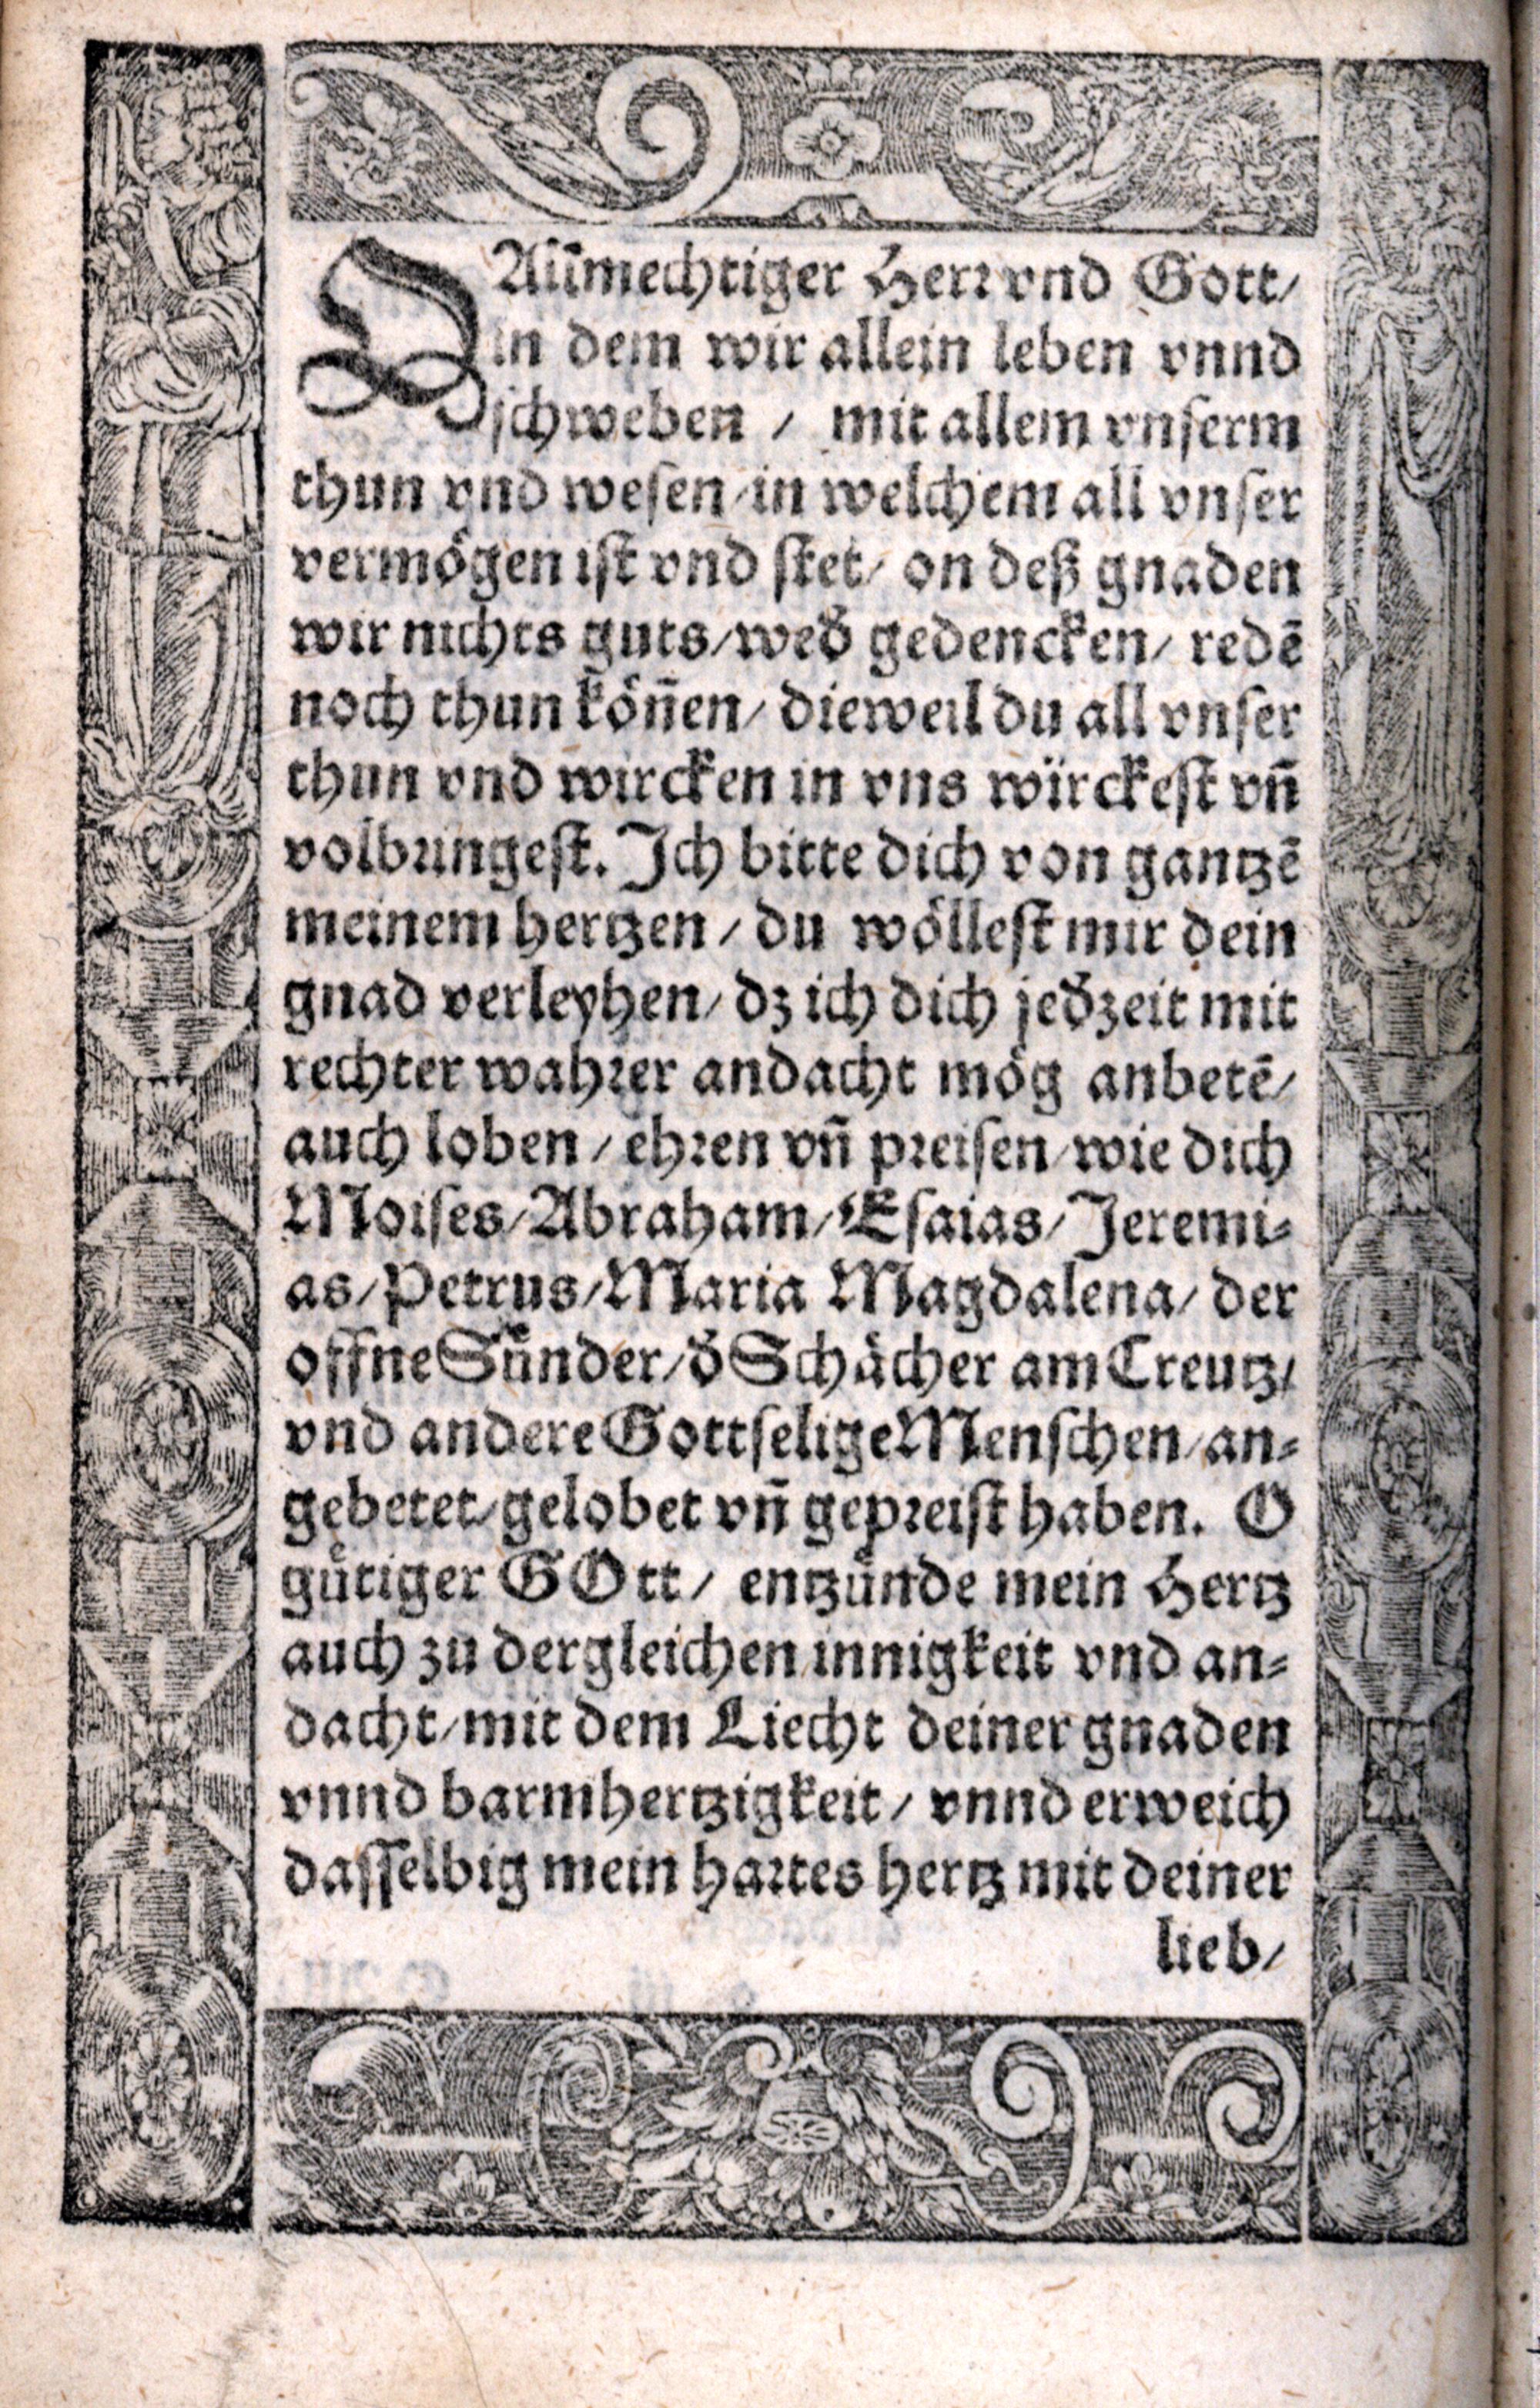 O Allmechtiger Herr vnd Gott/
in dem wir allein leben vnnd
schweben / mit allem vnserm
thun vnd wesen/in welchem all vnser
vermögen ist vnd stet/ on deß gnaden
wir nichts guts/wed̃ gedencken/ redẽ
noch thun köñen/ dieweil du all vnser
thun vnd wircken in vns würckest vñ
volbringest. Ich bitte dich von gantzẽ
meinem hertzen / du wöllest mir dein
gnad verleyhen/ dz ich dich jed̃zeit mit
rechter wahrer andacht mög anbetẽ/
auch loben / ehren vñ preisen/wie dich
Moises/Abraham/Esaias/Jeremi-
as/Petrus/Maria Magdalena/ der
offne Sünder/d̃ Schächer am Creutz/
vnd andere Gottselige Menschen/an-
gebetet/gelobet vñ gepreist haben. O
gütiger GOtt/ entzünde mein Hertz
auch zu dergleichen innigkeit vnd an-
dacht/mit dem Liecht deiner gnaden
vnnd barmhertzigkeit / vnnd erweich
dasselbig mein hartes hertz mit deiner
lieb/